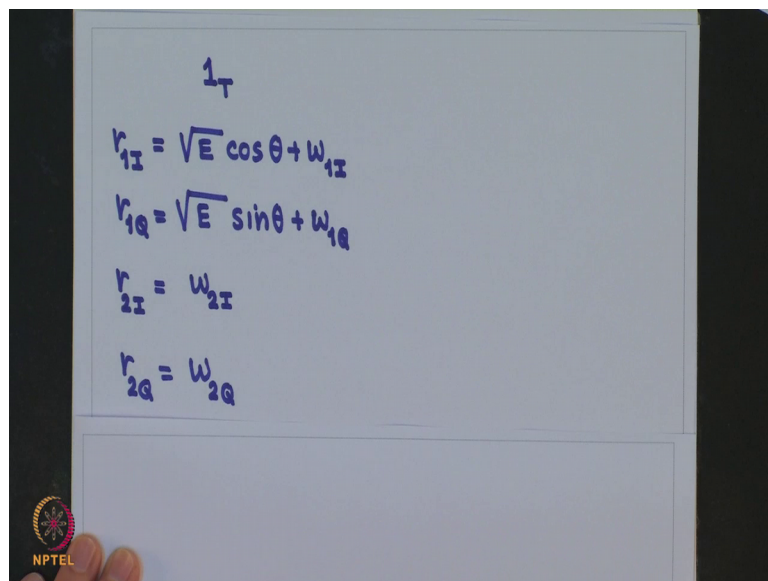 1_T
r_1I = √E cos θ + w_1I
r_1Q = √E sin θ + w_1Q
r_2I = w_2I
r_2Q = w_2Q
NPTEL